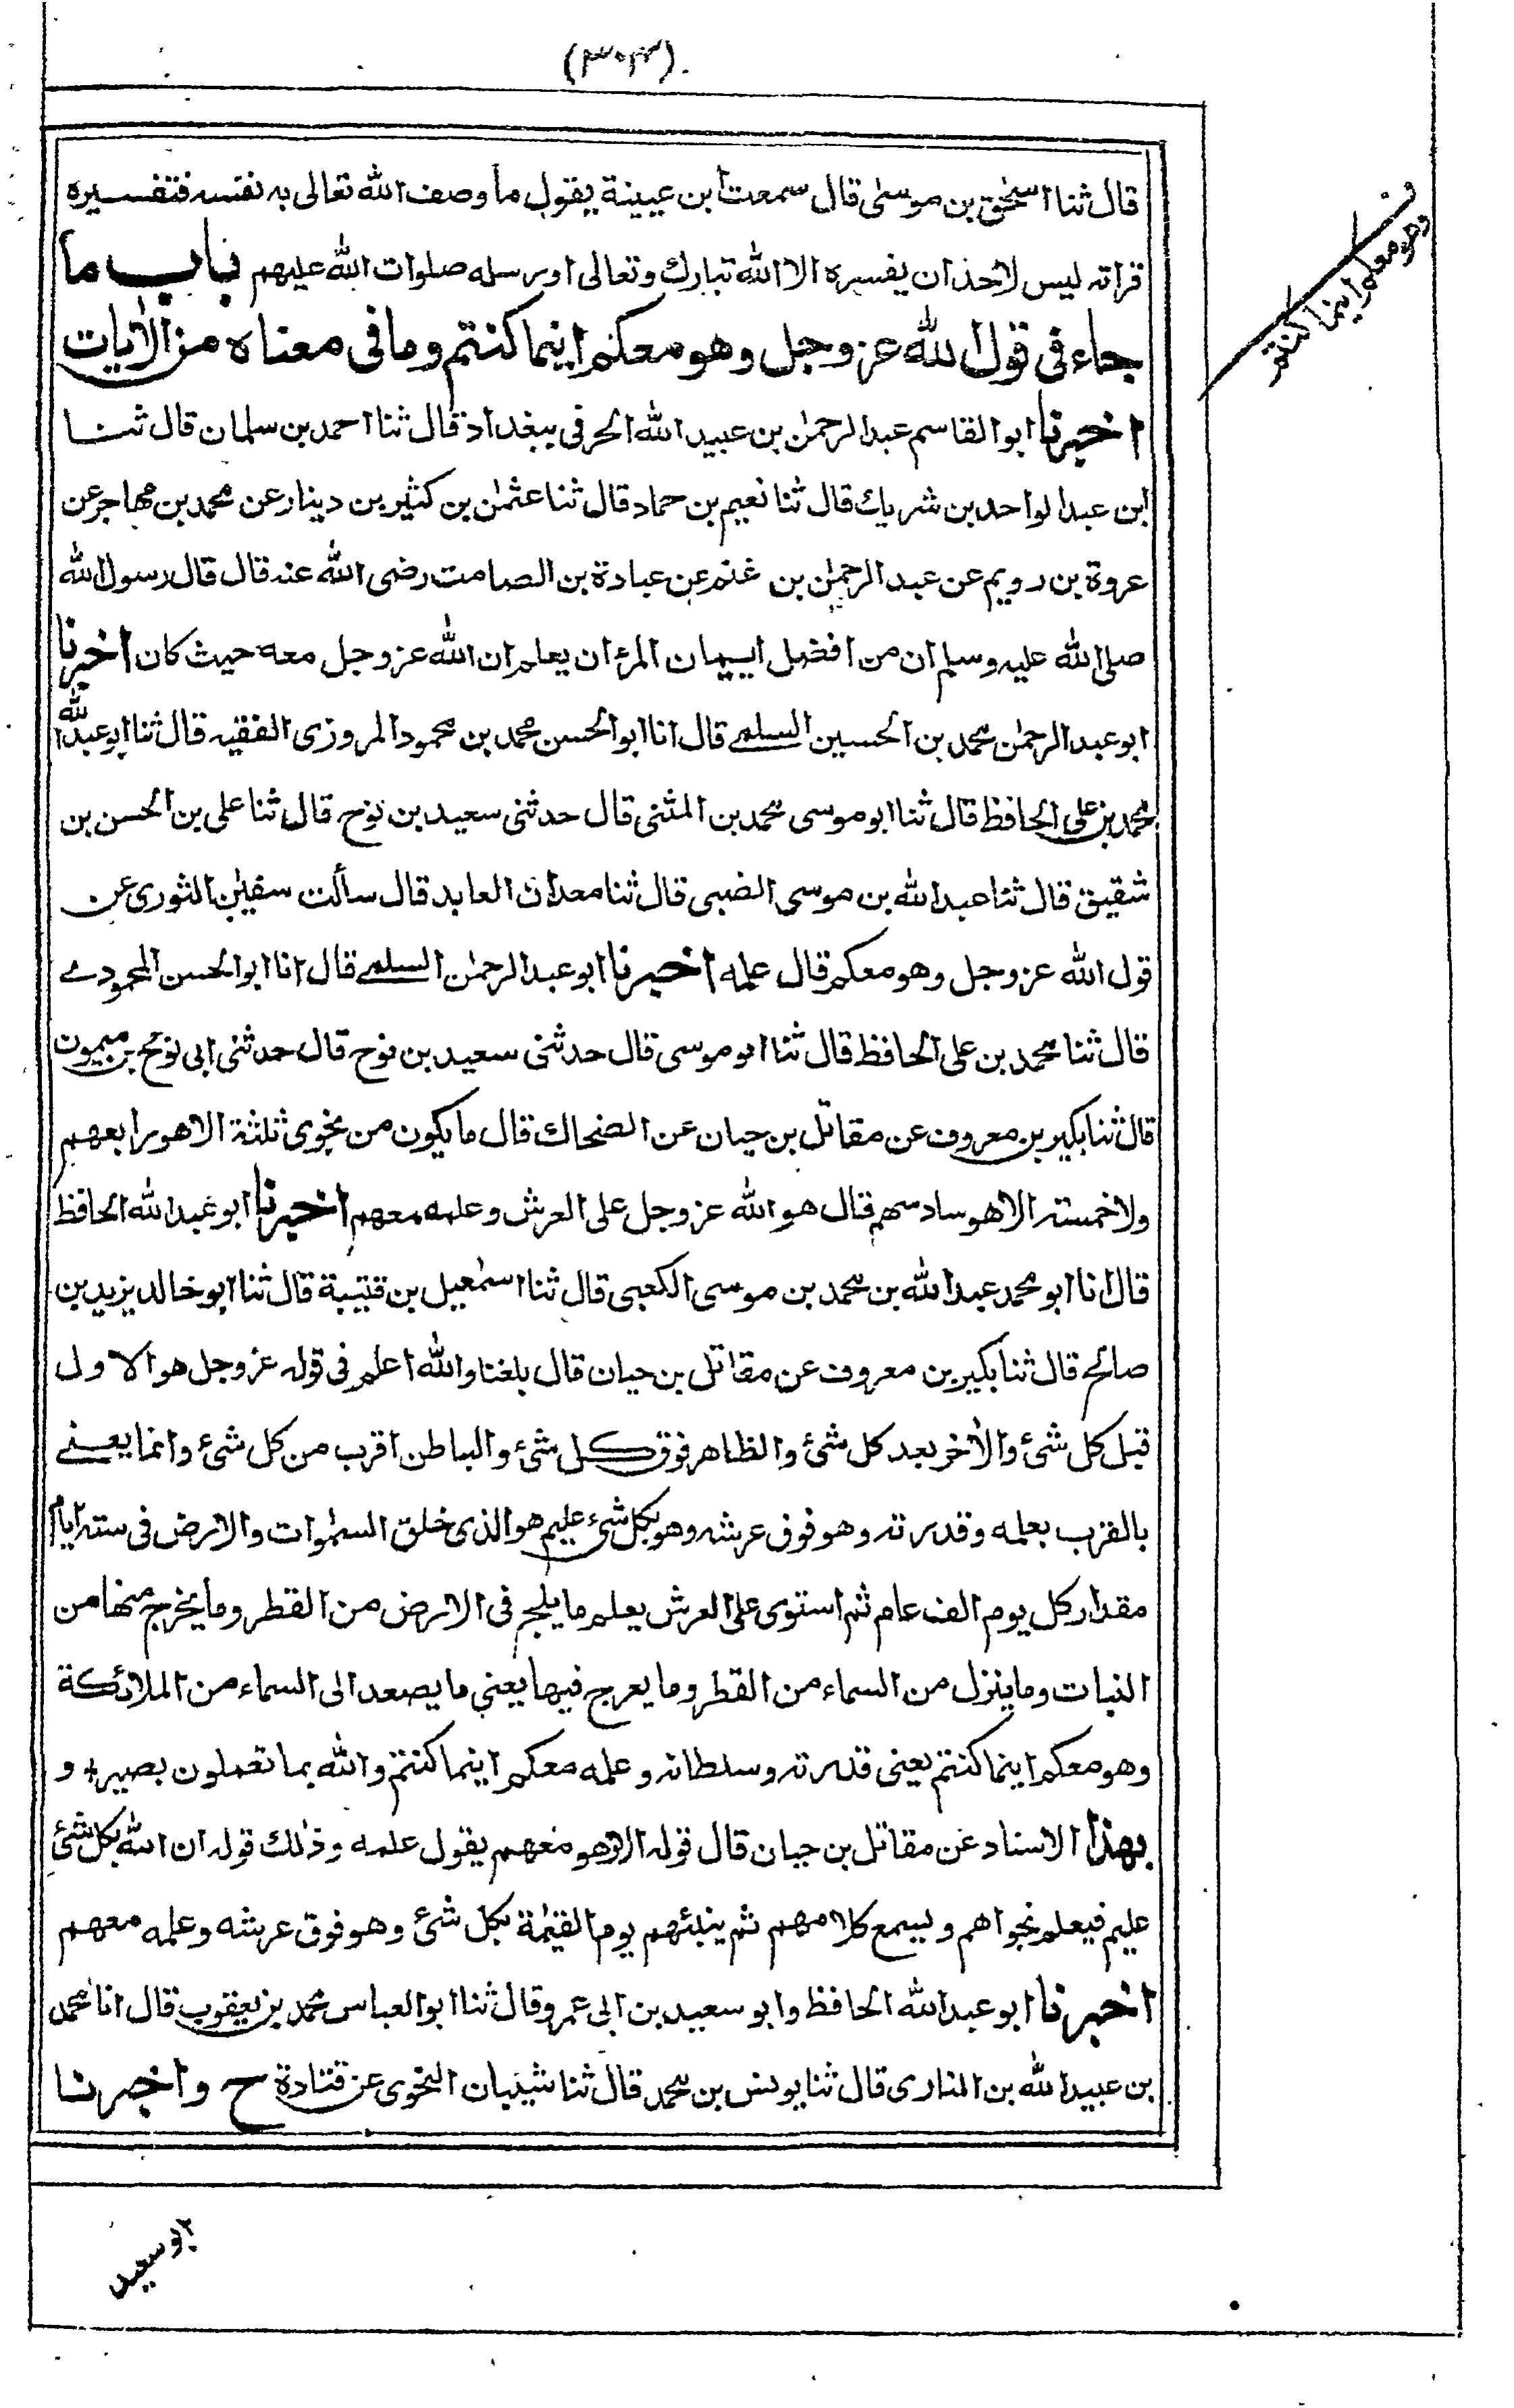 (٣٠٣)
قال ثنا اسحٰق بن موسى قال سمعت ابن عيينة يقول ما وصف الله تعالى به نفسه فتفسيره
قراته ليس لاحد ان يفسره الا الله تبارك وتعالى او رسله صلوات الله عليهم باب ما
جاء فى قول الله عز وجل وهو معكم اينما كنتم وما فى معناه من الاٰيات
وهو معكم اينما كنتم
اخبرنا ابو القاسم عبد الرحمٰن بن عبيد الله الحرفى ببغداد قال ثنا احمد بن سلمان قال ثنا
ابن عبد الواحد بن شريك قال ثنا نعيم بن حماد قال ثنا عثمٰن بن كثير بن دينار عن محمد بن مهاجر عن
عروة بن رويم عن عبد الرحمٰن بن غنم عن عبادة بن الصامت رضى الله عنه قال قال رسول الله
صلى الله عليه وسلم ان من افضل ايمان المرء ان يعلم ان الله عز وجل معه حيث كان اخبرنا
ابو عبد الرحمٰن محمد بن الحسين السلمى قال انا ابو الحسن محمد بن محمود المروزى الفقيه قال ثنا ابو عبد الله
محمد بن على الحافظ قال ثنا ابو موسى محمد بن المثنى قال حدثنى سعيد بن نوح قال ثنا على بن الحسن بن
شقيق قال ثنا عبد الله بن موسى الضبى قال ثنا معدان العابد قال سألت سفيٰن الثورى عن
قول الله عز وجل وهو معكم قال علمه اخبرنا ابو عبد الرحمٰن السلمى قال انا ابو الحسن المحمودى
قال ثنا محمد بن على الحافظ قال ثنا ابو موسى قال حدثنى سعيد بن نوح قال حدثنى ابى نوح بن ميمون
قال ثنا بكير بن معروف عن مقاتل بن حيان عن الضحاك قال ما يكون من نجوى ثلثة الا هو رابعهم
ولا خمسة الا هو سادسهم قال هو الله عز وجل على العرش وعلمه معهم اخبرنا ابو عبد الله الحافظ
قال انا ابو محمد عبد الله بن محمد بن موسى الكعبى قال ثنا اسمٰعيل بن قتيبة قال ثنا ابو خالد يزيد بن
صالح قال ثنا بكير بن معروف عن مقاتل بن حيان قال بلغنا والله اعلم فى قوله عز وجل هو الاول
قبل كل شئ والاٰخر بعد كل شئ والظاهر فوق كل شئ والباطن اقرب من كل شئ وانما يعنى
بالقرب بعلمه وقدرته وهو فوق عرشه وهو بكل شىء عليم هو الذى خلق السمٰوات والارض فى ستة ايام
مقدار كل يوم الف عام ثم استوى على العرش يعلم ما يلج فى الارض من القطر وما يخرج منها من
النبات وما ينزل من السماء من القطر وما يعرج فيها يعنى ما يصعد الى السماء من الملائكة
وهو معكم اينما كنتم يعنى قدرته وسلطانه وعلمه معكم اينما كنتم والله بما تعملون بصير، و
بهذا الاسناد عن مقاتل بن حيان قال قوله الا هو معهم يقول علمه وذٰلك قوله ان الله بكل شئ
عليم فيعلم نجواهم ويسمع كلامهم ثم ينبئهم يوم القيٰمة بكل شئ وهو فوق عرشه وعلمه معهم
اخبرنا ابو عبد الله الحافظ وابو سعيد بن ابى عمرو قال ثنا ابو العباس محمد بن يعقوب قال انا محمد
بن عبيد الله بن المنارى قال ثنا يونس بن محمد قال ثنا شيبان النحوى عن قتادة ح واخبرنا
ابو سعيد